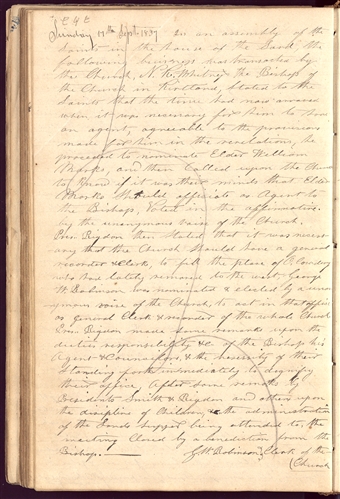 Sunday 17th Sept 1837 In an assembly of the
Saints in the house of the Lord, the
following business was transacted by
the Church, N. K. Whitney the Bishop of
the Church in Kirtland, Stated to the
Saints that the time had now arrived
when it was necessary for him to have
an agent, agreeable to the provisions
made for him in the revelations, he
proceeded to nominate Elder William
Marks, and then Called upon the Church
to know if it was their minds that Elder
Marks Should officiate as Agent to
the Bishop, Voted in the affirmative
by the unanymous voice of the Church.
Pres. Rigdon then stated that it was neces-
sary that the Church Should have a general
recorder & Clerk, to fill the place of O. Cowdery
who has lately removed to the west, George
W. Robinson was nominated & elected by a unan-
ymous voice of the Church, to act in that office
as general Clerk & recorder of the whole Church
Pres. Rigdon made some remarks upon the
duties responsibility &c of the Bishop his
Agent & Councillors, & the necessity of their
standing forth immediately to dignify
their office, After some remarks by
Presidents Smith & Rigdon and others upon
the discipline of Children, & the administration
of the Lords Supper being attended to, the
meeting Closed by a benediction from the
Bishop.
G W Robinson, Clerk of the
Church